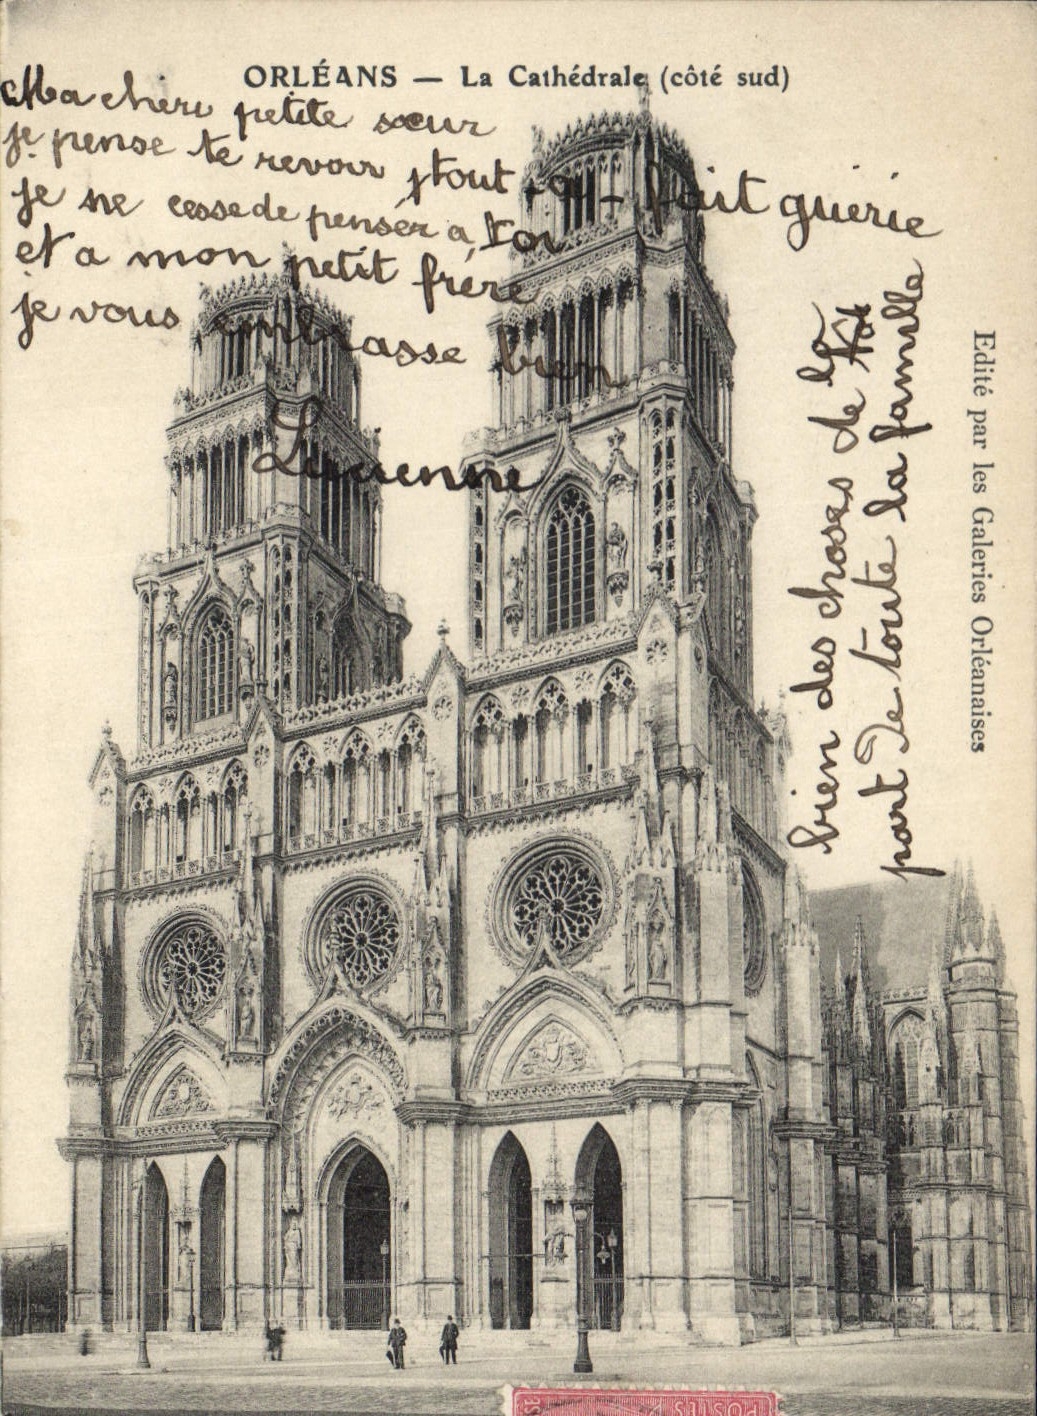 ORLÉANS — La Cathédrale (côté sud)
Ma chère petite sœur
je pense te revoir tout -a- fait guérie
je ne cesse de penser a toi
et a mon petit frére
je vous embrasse bien
Lucienne
bien des choses de la
part de toute la famille
Edité par les Galeries Orléanaises
POSTES